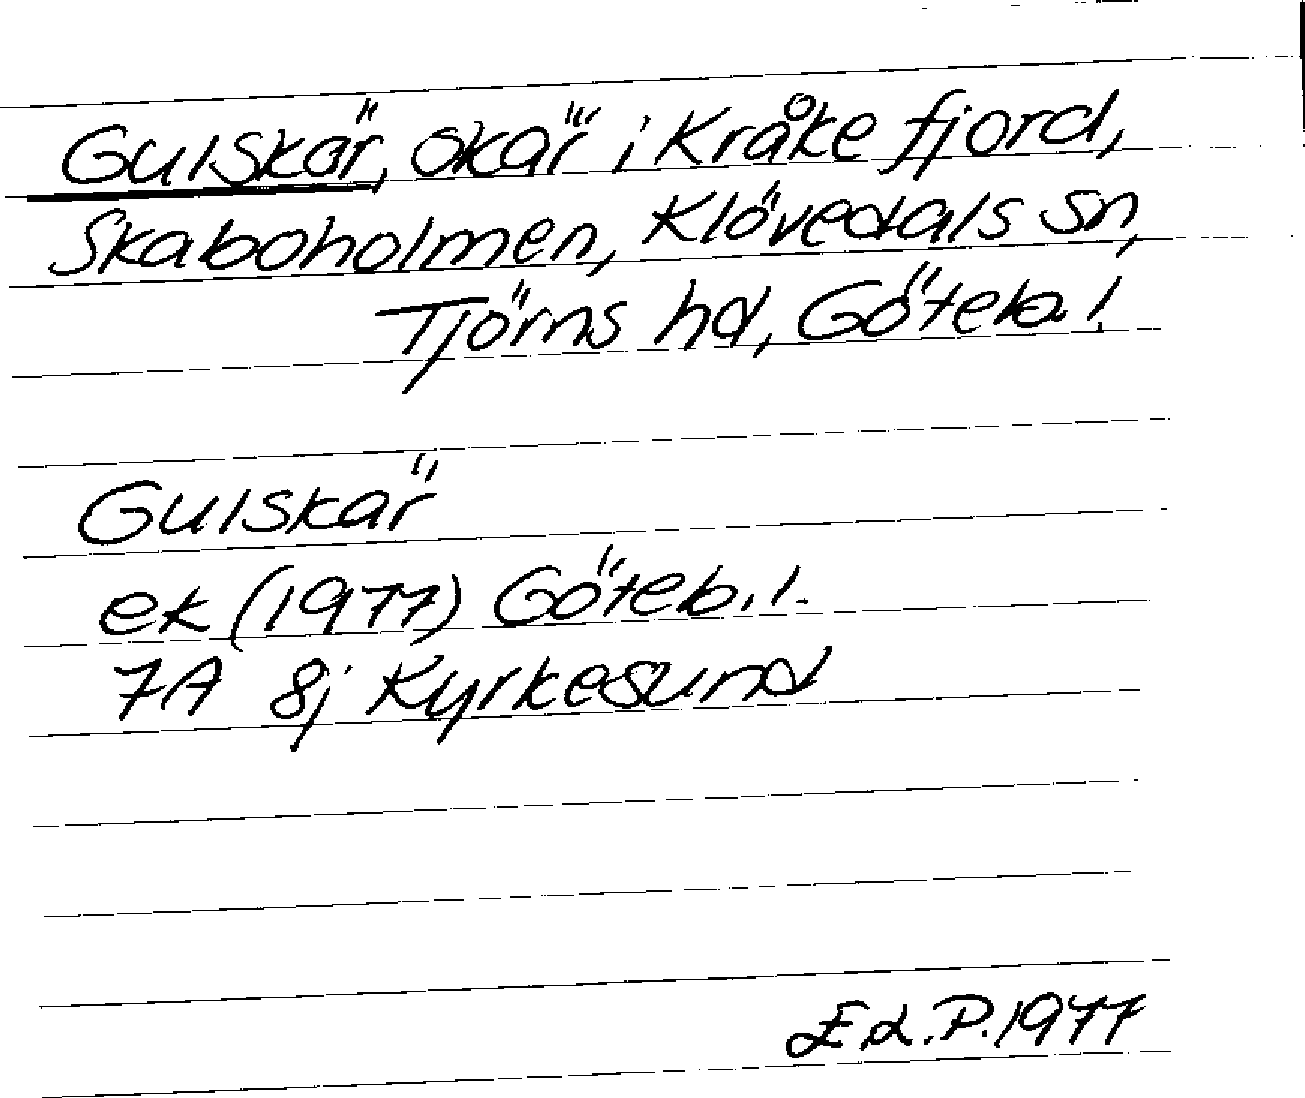 Gulskär, skär i Kråke fjord,
Skaboholmen, Klövedals sn,
Tjörns hd, Göteb. l.
Gulskär
ek (1977) Göteb. l.
7A 8j Kyrkesund
1977